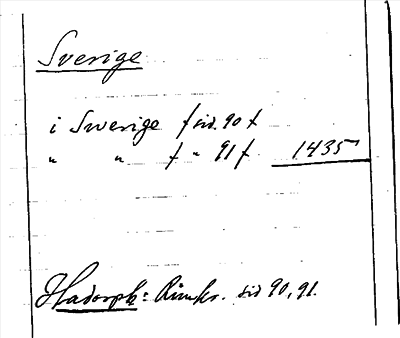 Sverige
i Swerige f sid. 90 f
" " f " 91 f 1435
Hadorph: Rimkr. sid 90, 91.